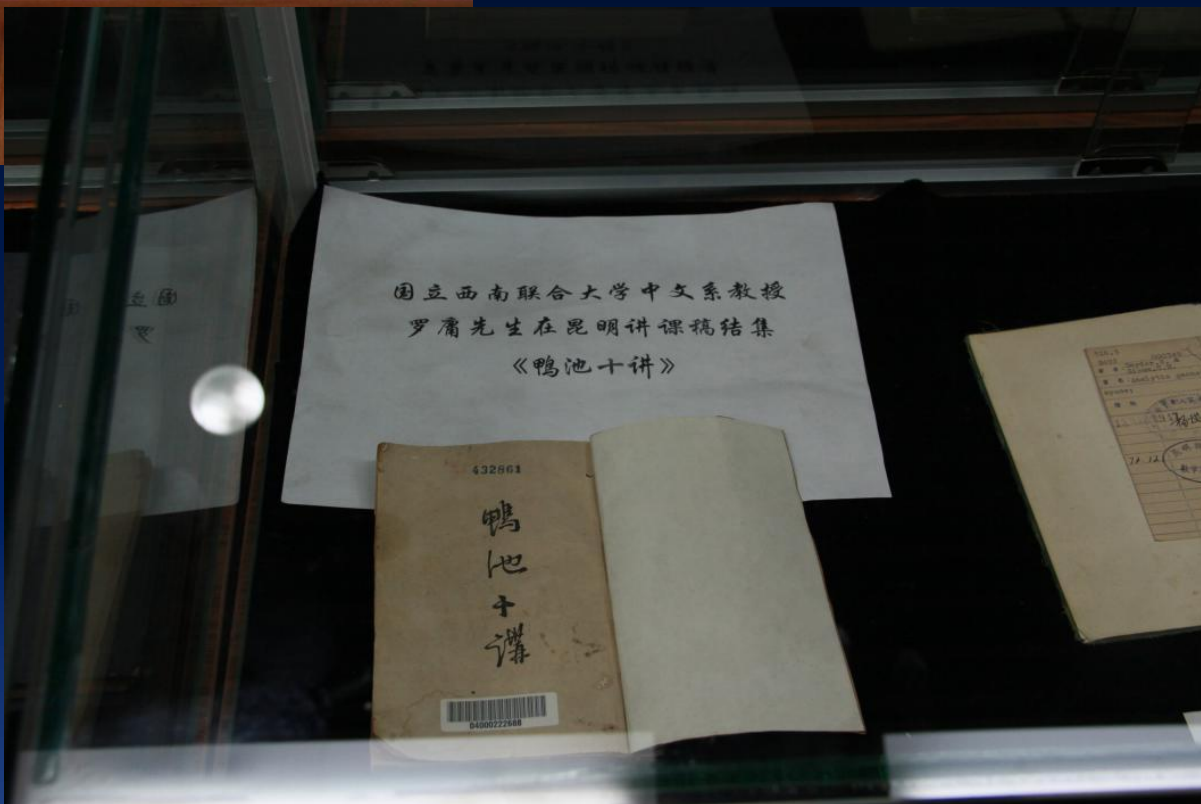 国立西南联合大学中文系教授
罗庸先生在昆明讲课稿结集
《鸭池十讲》
432861
鴨池十講
04000222688